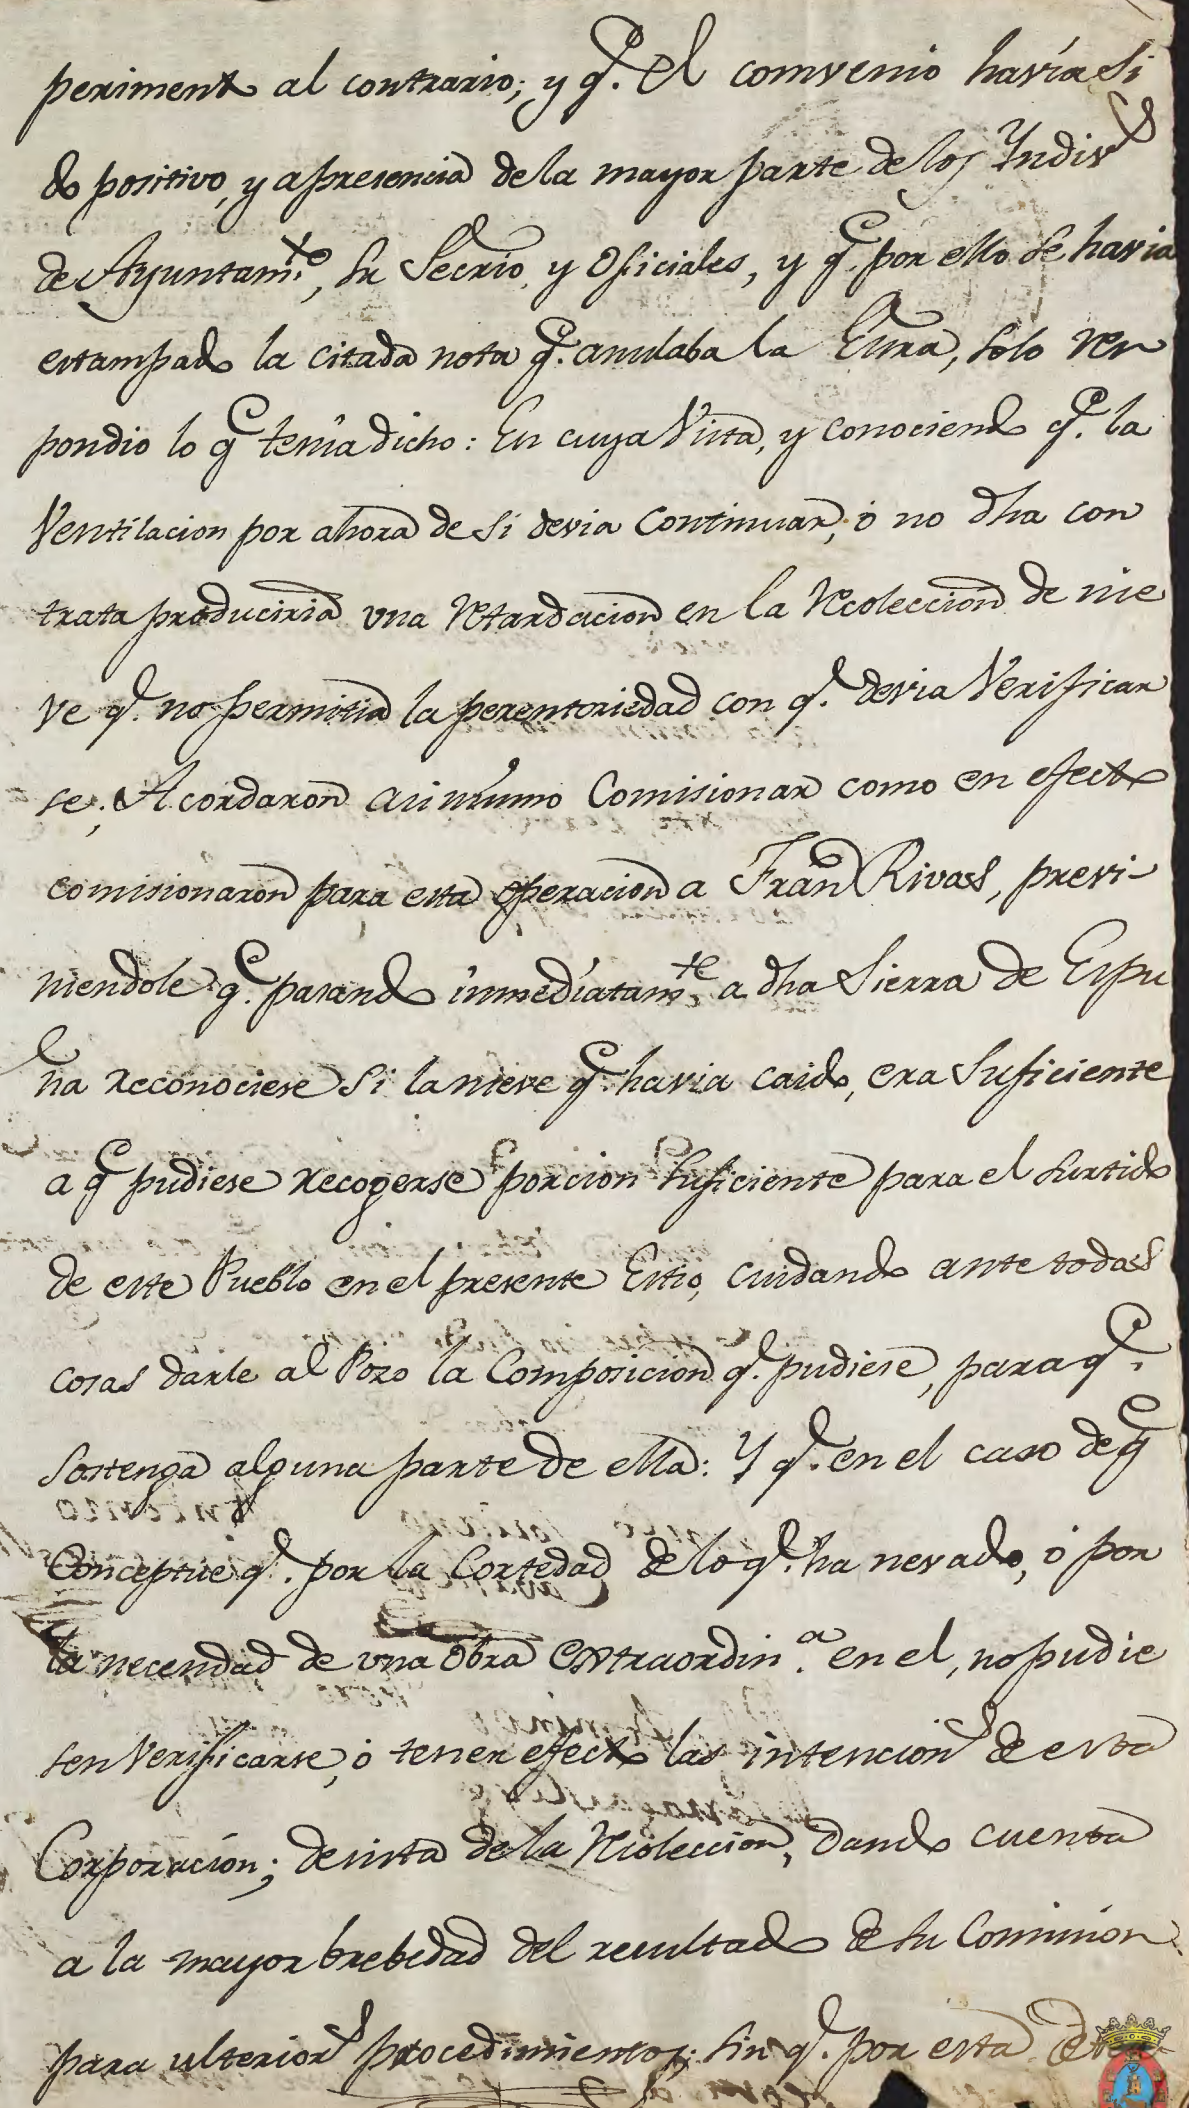 periment.to al contrario; y q.e el comvenio havia si
do positivo, y apresencia de la mayor parte de los Yndiv.s
de Ayuntam.to, su Secrio, y Oficiales, y q.e por ello se havia
estampado la citada nota q.e anulaba la Esura, solo res
pondio lo q.e tenia dicho: En cuya Vista, y conociendo q.e la
Ventilacion por ahora de si devia Continuar, ó no dha con
trata produciria una Retardacion en la Recoleccion de nie
ve q.e no permitia la perentoriedad con q.e devia Verificar
se; Acordaron asimismo Comisionar como en efecto
comisionaron para esta operacion a Fran.co Rivas, previ-
niendole q.e pasando inmediatam.te a dha Sierra de Espu
ña reconociese si la nieve q.e havia caido, era Suficiente
a q.e pudiese recogerse porcion suficiente para el surtido
de este Pueblo en el presente Estio, cuidando ante todas
cosas darle al Pozo la Composicion q.e pudiese, para q.e
sostenga alguna parte de ella: Y q.e en el caso de q.e
Conceptúe q.e por la Cortedad de lo q.e ha nevado, ó por
la necesidad de una Obra Extraordin.a en el, no pudie
sen Verificarse, ó tener efecto las intencion.s de esta
Corporacion; desista de la Recoleccion, dando cuenta
a la mayor brebedad del resultado de su Comision
para ulterior.s procedimientos; sin q.e por esta